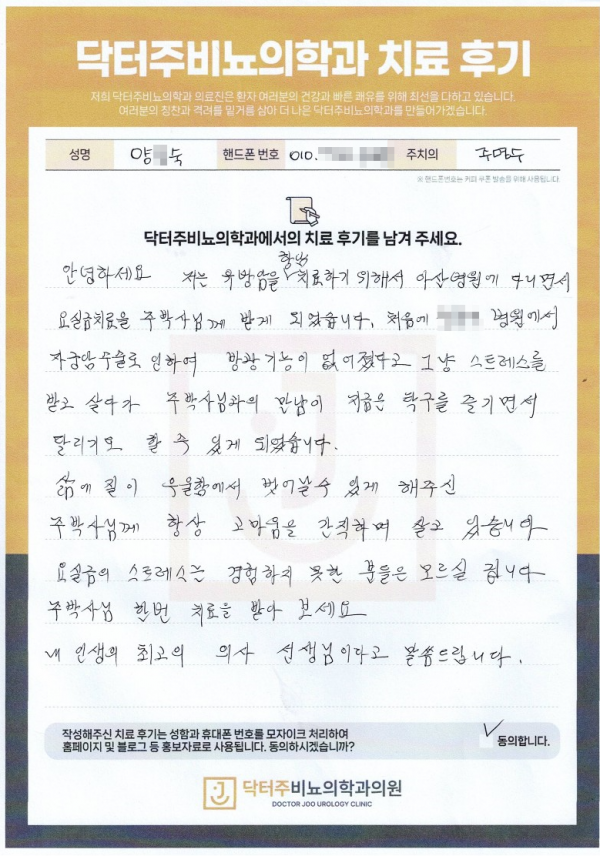 닥터주비뇨의학과 치료 후기
저희 닥터주비뇨의학과 의료진은 환자 여러분의 건강과 빠른 쾌유를 위해 최선을 다하고 있습니다.
여러분의 칭찬과 격려를 밑거름 삼아 더 나은 닥터주비뇨의학과를 만들어가겠습니다.
성명 양 숙 핸드폰 번호 010. 주치의 주명수
※ 핸드폰번호는 커피 쿠폰 발송을 위해 사용됩니다.
닥터주비뇨의학과에서의 치료 후기를 남겨 주세요.
안녕하세요 저는 유방암을 항암 치료하기 위해서 아산병원에 다니면서
요실금치료을 주박사님께 받게 되었습니다. 처음에 병원에서
자궁암수술로 인하여 방광기능이 없어졌다고 그냥 스트레스를
받고 살다가 주박사님과의 만남이 지금은 탁구를 즐기면서
달리기도 할 수 있게 되었습니다.
삶에 질이 우울함에서 벗어날수 있게 해주신
주박사님께 항상 고마움을 간직하며 살고 있습니다
요실금의 스트레스는 경험하지 못한 분들은 모르실 겁니다
주박사님 한번 치료을 받아 보세요
내 인생의 최고의 의사 선생님이다고 말씀드립니다.
작성해주신 치료 후기는 성함과 휴대폰 번호를 모자이크 처리하여
홈페이지 및 블로그 등 홍보자료로 사용됩니다. 동의하시겠습니까?
동의합니다.
닥터주비뇨의학과의원
DOCTOR JOO UROLOGY CLINIC